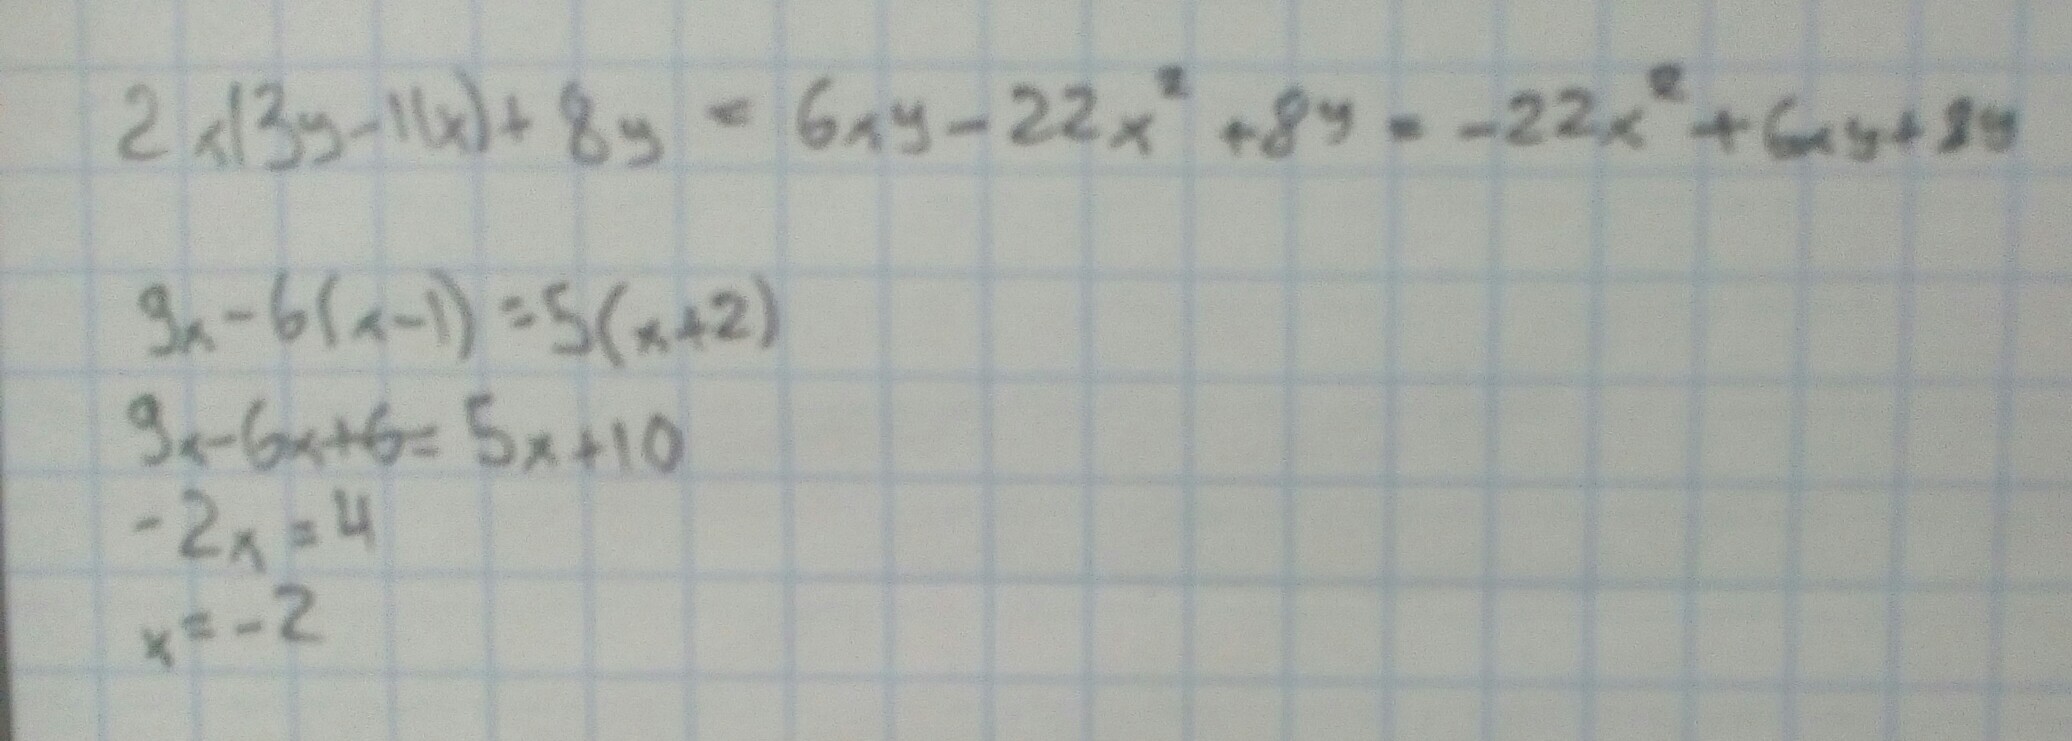 2x(3y-11x)+8y = 6xy-22x²+8y = -22x²+6xy+8y
9x-6(x-1)=5(x+2)
9x-6x+6=5x+10
-2x=4
x=-2